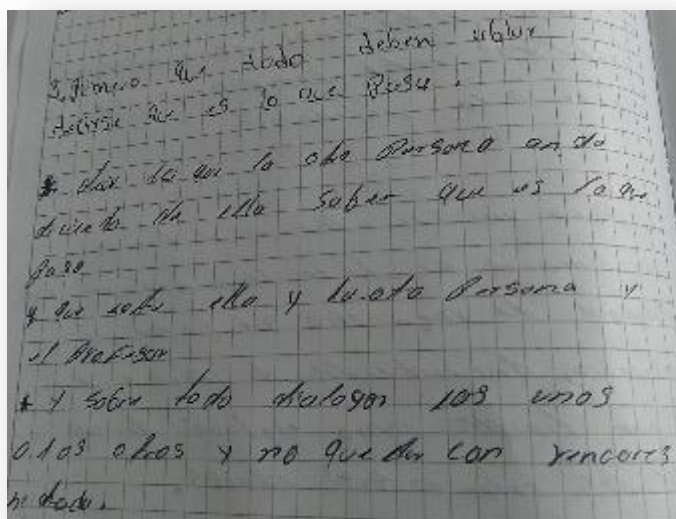 3. Primero que todo deben ablar
decirse que es lo que Pasa.
* lo que la otra Persona anda
diciendo de ella saber que es lo que
paso
y que ella y la otra Persona y
el Profesor
* y sobre todo dialogar los unos
a los otros y no quedar con rencores
ni todo.